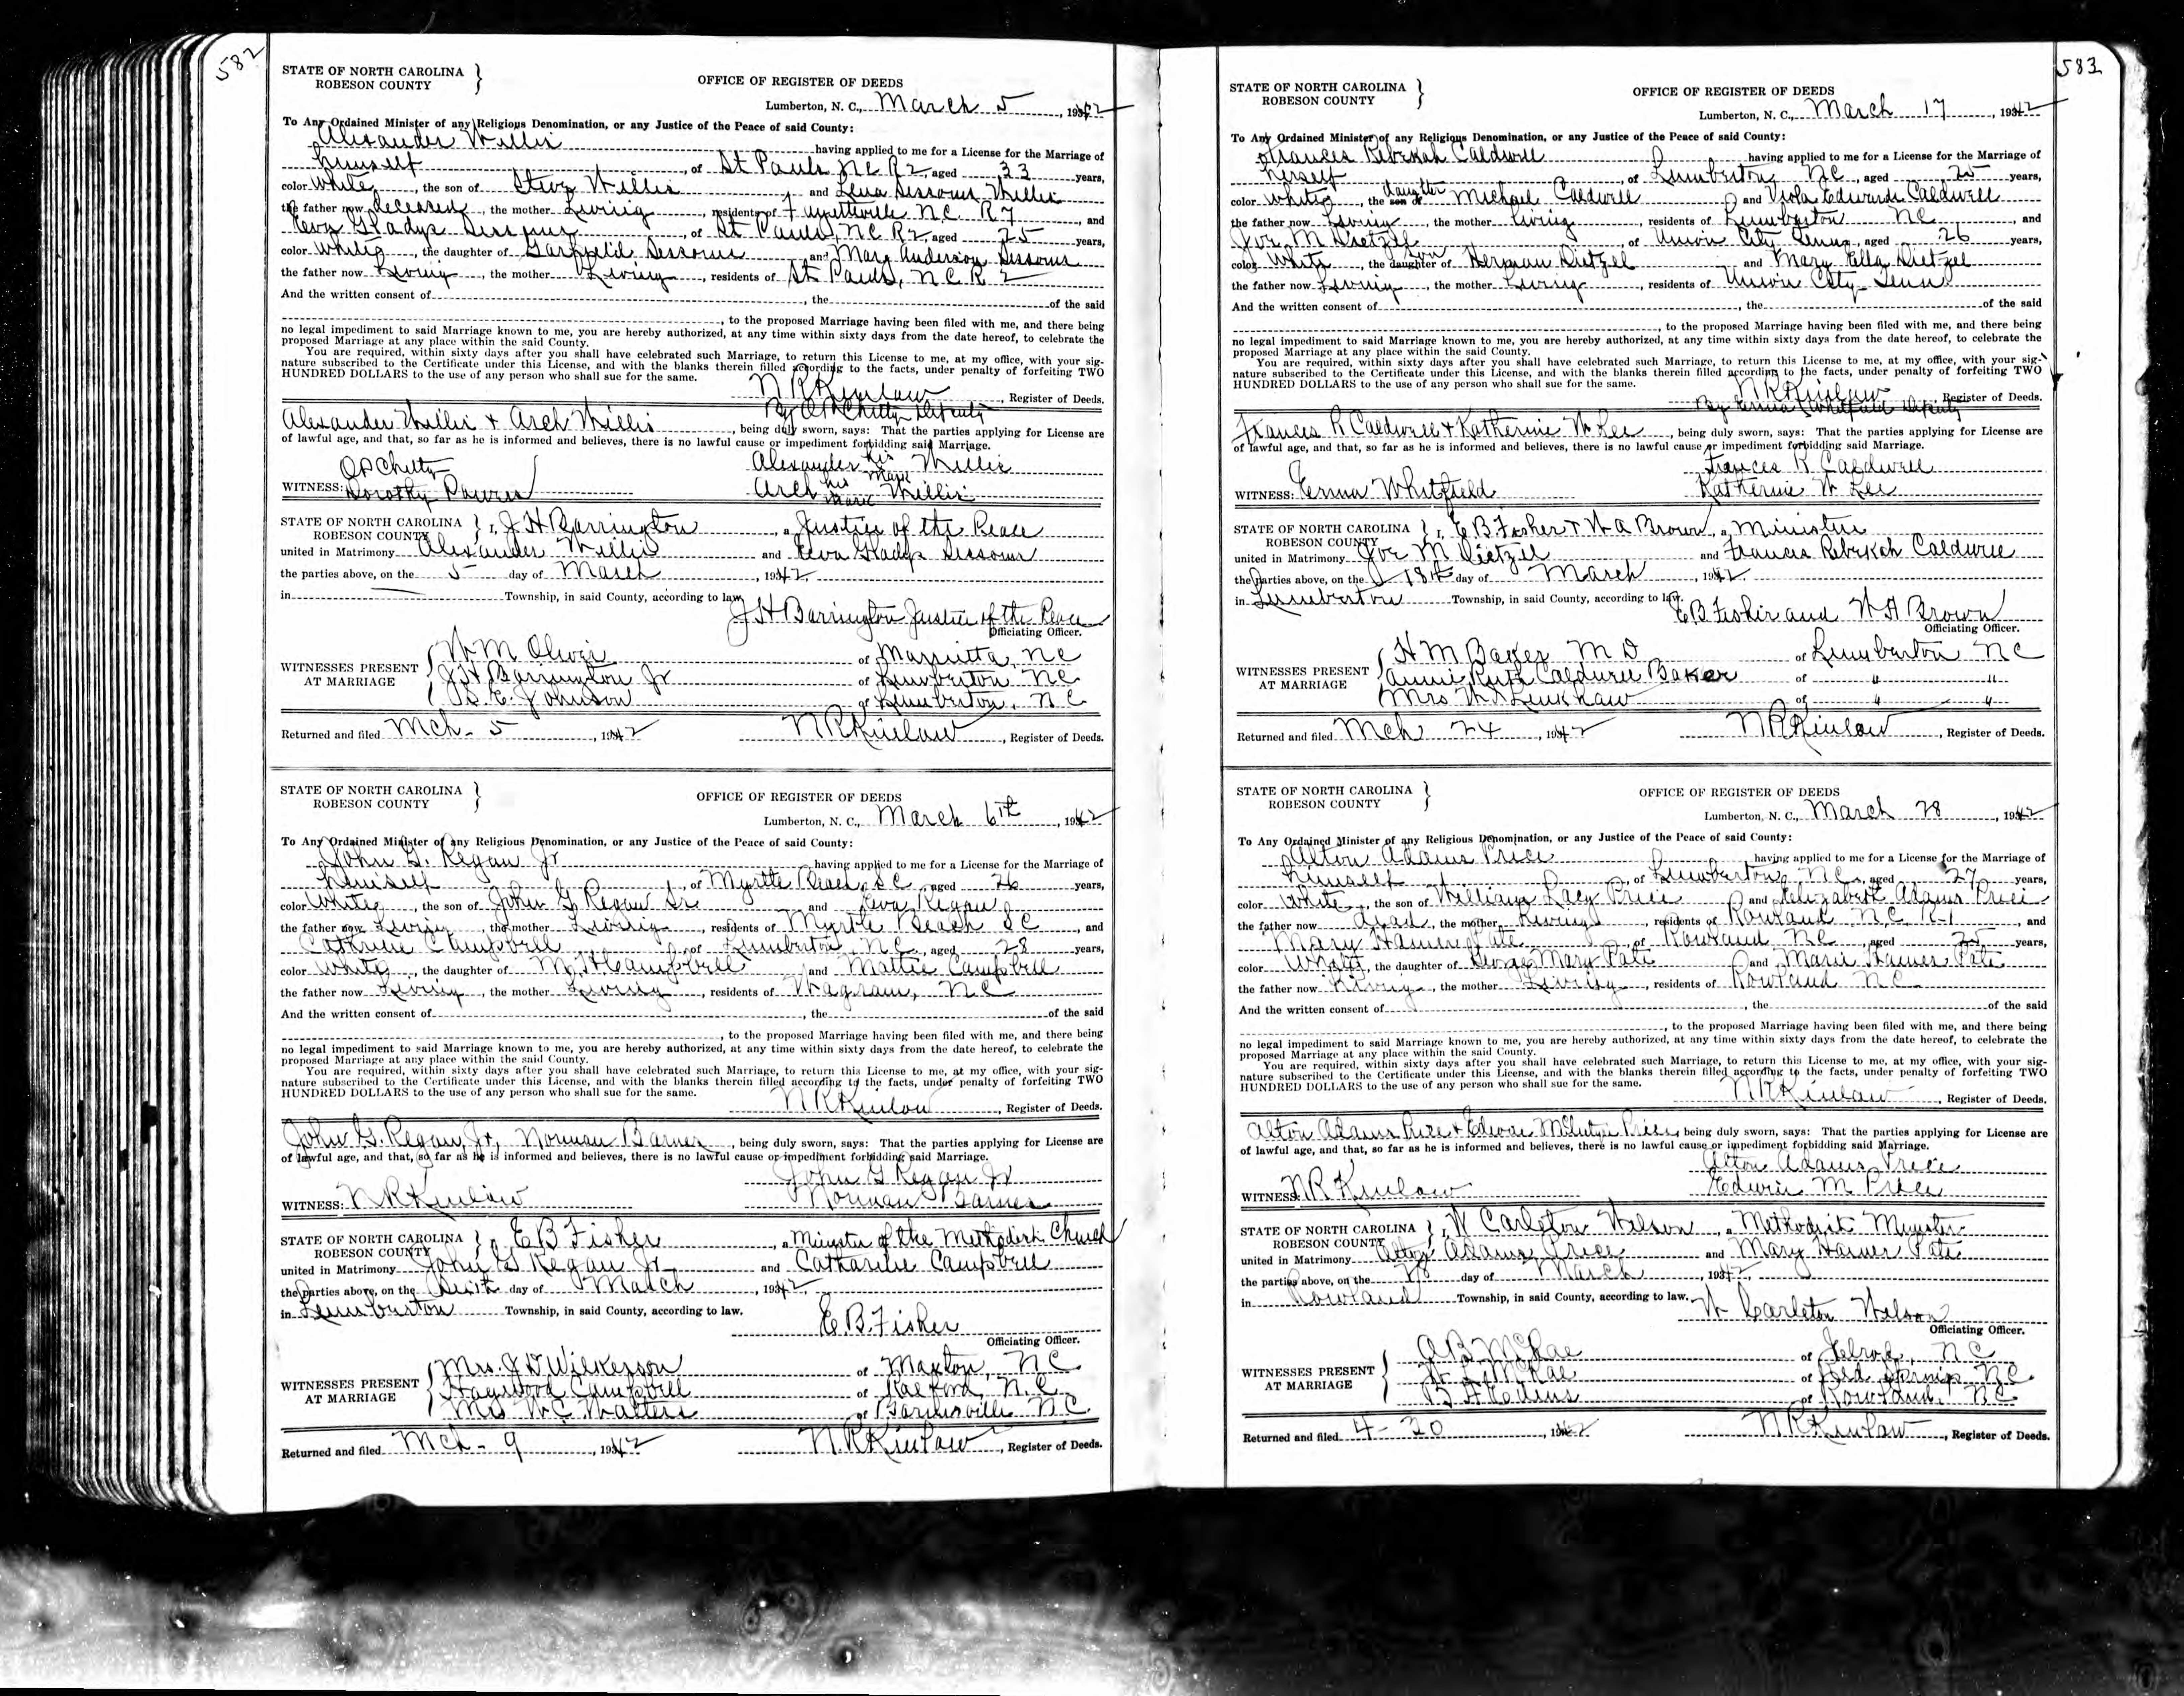 582
STATE OF NORTH CAROLINA
ROBESON COUNTY
OFFICE OF REGISTER OF DEEDS
Lumberton, N. C., March 5, 1942
To Any Ordained Minister of any Religious Denomination, or any Justice of the Peace of said County:
Alexander Willis having applied to me for a License for the Marriage of
himself, of St Pauls NC R2, aged 33 years,
color White, the son of Steve Willis and Lena Sessoms Willis
the father now deceased, the mother Living, residents of Fayetteville NC R7, and
Eva Gladys Sessoms, of St Pauls, NC R2, aged 25 years,
color White, the daughter of Garffield Sessoms and Mary Anderson Sessoms
the father now Living, the mother Living, residents of St Pauls, N.C. R 2
And the written consent of , the of the said
, to the proposed Marriage having been filed with me, and there being
no legal impediment to said Marriage known to me, you are hereby authorized, at any time within sixty days from the date hereof, to celebrate the
proposed Marriage at any place within the said County.
You are required, within sixty days after you shall have celebrated such Marriage, to return this License to me, at my office, with your sig-
nature subscribed to the Certificate under this License, and with the blanks therein filled according to the facts, under penalty of forfeiting TWO
HUNDRED DOLLARS to the use of any person who shall sue for the same.
N R Kinlaw, Register of Deeds.
By Deputy
Alexander Willis + Arch Willis, being duly sworn, says: That the parties applying for License are
of lawful age, and that, so far as he is informed and believes, there is no lawful cause or impediment forbidding said Marriage.
Alexander his mark Willis
WITNESS: Dorothy Powers Arch his mark Willis
STATE OF NORTH CAROLINA
ROBESON COUNTY
I, J. H Barrington, a Justice of the Peace
united in Matrimony Alexander Willis and Eva Gladys Sessoms
the parties above, on the 5 day of March, 1942
in Township, in said County, according to law.
J H Barrington Justice of the Peace
Officiating Officer.
WITNESSES PRESENT
AT MARRIAGE
W M Oliver of Marrietta, NC
J H Barrington Jr of Lumberton NC
B. E. Johnson of Lumberton, N C
Returned and filed Mch - 5, 1942 N R Kinlaw, Register of Deeds.
STATE OF NORTH CAROLINA
ROBESON COUNTY
OFFICE OF REGISTER OF DEEDS
Lumberton, N. C., March 6th, 1942
To Any Ordained Minister of any Religious Denomination, or any Justice of the Peace of said County:
John G. Regan Jr having applied to me for a License for the Marriage of
himself, of Myrtle Beach, SC, aged 26 years,
color White, the son of John G Regan Sr and Eva Regan
the father now Living, the mother Living, residents of Myrtle Beach SC, and
Cathrine Campbell of Lumberton, NC, aged 28 years,
color White, the daughter of M H Campbell and Mattie Campbell
the father now Living, the mother Living, residents of Wagram, NC
And the written consent of , the of the said
, to the proposed Marriage having been filed with me, and there being
no legal impediment to said Marriage known to me, you are hereby authorized, at any time within sixty days from the date hereof, to celebrate the
proposed Marriage at any place within the said County.
You are required, within sixty days after you shall have celebrated such Marriage, to return this License to me, at my office, with your sig-
nature subscribed to the Certificate under this License, and with the blanks therein filled according to the facts, under penalty of forfeiting TWO
HUNDRED DOLLARS to the use of any person who shall sue for the same.
N R Kinlaw, Register of Deeds.
John G. Regan, Jr, Norman Barnes, being duly sworn, says: That the parties applying for License are
of lawful age, and that, so far as he is informed and believes, there is no lawful cause or impediment forbidding said Marriage.
John G Regan Jr
WITNESS: N R Kinlaw Norman Barnes
STATE OF NORTH CAROLINA
ROBESON COUNTY
I, E B Fisher, a Minister of the Methodist Church
united in Matrimony John G Regan Jr. and Catharine Campbell
the parties above, on the Sixth day of March, 1942
in Lumberton Township, in said County, according to law.
E. B. Fisher
Officiating Officer.
WITNESSES PRESENT
AT MARRIAGE
Mrs. J D Wilkerson of Maxton, NC
Haywood Campbell of Raeford, N.C.
Mrs W C Walters of Barnesville NC
Returned and filed Mch - 9, 1942 N. R Kinlaw, Register of Deeds.
583
STATE OF NORTH CAROLINA
ROBESON COUNTY
OFFICE OF REGISTER OF DEEDS
Lumberton, N. C., March 17, 1942
To Any Ordained Minister of any Religious Denomination, or any Justice of the Peace of said County:
Frances Rebekah Caldwell having applied to me for a License for the Marriage of
herself, of Lumberton NC, aged 25 years,
color White, the daughter Michael Caldwell and Viola Edwards Caldwell
the father now Living, the mother Living, residents of Lumberton NC, and
Joe M Dietzel, of Union City Tenn, aged 26 years,
color White, the daughter of son Herman Dietzel and Mary Ella Dietzel
the father now Living, the mother Living, residents of Union City Tenn
And the written consent of , the of the said
, to the proposed Marriage having been filed with me, and there being
no legal impediment to said Marriage known to me, you are hereby authorized, at any time within sixty days from the date hereof, to celebrate the
proposed Marriage at any place within the said County.
You are required, within sixty days after you shall have celebrated such Marriage, to return this License to me, at my office, with your sig-
nature subscribed to the Certificate under this License, and with the blanks therein filled according to the facts, under penalty of forfeiting TWO
HUNDRED DOLLARS to the use of any person who shall sue for the same.
N R Kinlaw, Register of Deeds.
By Emma Whitfield Deputy
Frances R Caldwell + Katherine W Lee, being duly sworn, says: That the parties applying for License are
of lawful age, and that, so far as he is informed and believes, there is no lawful cause or impediment forbidding said Marriage.
Frances R Caldwell
WITNESS: Emma Whitfield Katherine W Lee
STATE OF NORTH CAROLINA
ROBESON COUNTY
I, E B Fisher + W A Brown, a Minister
united in Matrimony Joe M Dietzel and Frances Rebekah Caldwell
the parties above, on the 18th day of March, 1942
in Lumberton Township, in said County, according to law.
E B Fisher and W A Brown
Officiating Officer.
WITNESSES PRESENT
AT MARRIAGE
H M Baker M D of Lumberton NC
Annie Ruth Caldwell Baker of " "
Mrs W S Linkhaw of " "
Returned and filed Mch 24, 1942 N R Kinlaw, Register of Deeds.
STATE OF NORTH CAROLINA
ROBESON COUNTY
OFFICE OF REGISTER OF DEEDS
Lumberton, N. C., March 28, 1942
To Any Ordained Minister of any Religious Denomination, or any Justice of the Peace of said County:
Alton Adams Price having applied to me for a License for the Marriage of
himself, of Lumberton, NC, aged 27 years,
color White, the son of William Lacy Price and Elizabeth Adams Price
the father now dead, the mother Living, residents of Rowland NC, R-1 and
Mary Hamer Pate, of Rowland NC, aged 25 years,
color White, the daughter of Mary Pate and Marie Hamer Pate
the father now Living, the mother Living, residents of Rowland NC
And the written consent of , the of the said
, to the proposed Marriage having been filed with me, and there being
no legal impediment to said Marriage known to me, you are hereby authorized, at any time within sixty days from the date hereof, to celebrate the
proposed Marriage at any place within the said County.
You are required, within sixty days after you shall have celebrated such Marriage, to return this License to me, at my office, with your sig-
nature subscribed to the Certificate under this License, and with the blanks therein filled according to the facts, under penalty of forfeiting TWO
HUNDRED DOLLARS to the use of any person who shall sue for the same.
N R Kinlaw, Register of Deeds.
Alton Adams Price + Edwin McIntyre Price, being duly sworn, says: That the parties applying for License are
of lawful age, and that, so far as he is informed and believes, there is no lawful cause or impediment forbidding said Marriage.
Alton Adams Price
WITNESS: N R Kinlaw Edwin M Price
STATE OF NORTH CAROLINA
ROBESON COUNTY
I, W Carleton Wilson, a Methodist Minister
united in Matrimony Alton Adams Price and Mary Hamer Pate
the parties above, on the 28 day of March, 1942,
in Rowland Township, in said County, according to law.
W Carleton Wilson
Officiating Officer.
WITNESSES PRESENT
AT MARRIAGE
A B McRae of Elrod, NC
McRae of Red Springs NC
of Rowland, NC
Returned and filed 4-30, 1942 N R Kinlaw, Register of Deeds.